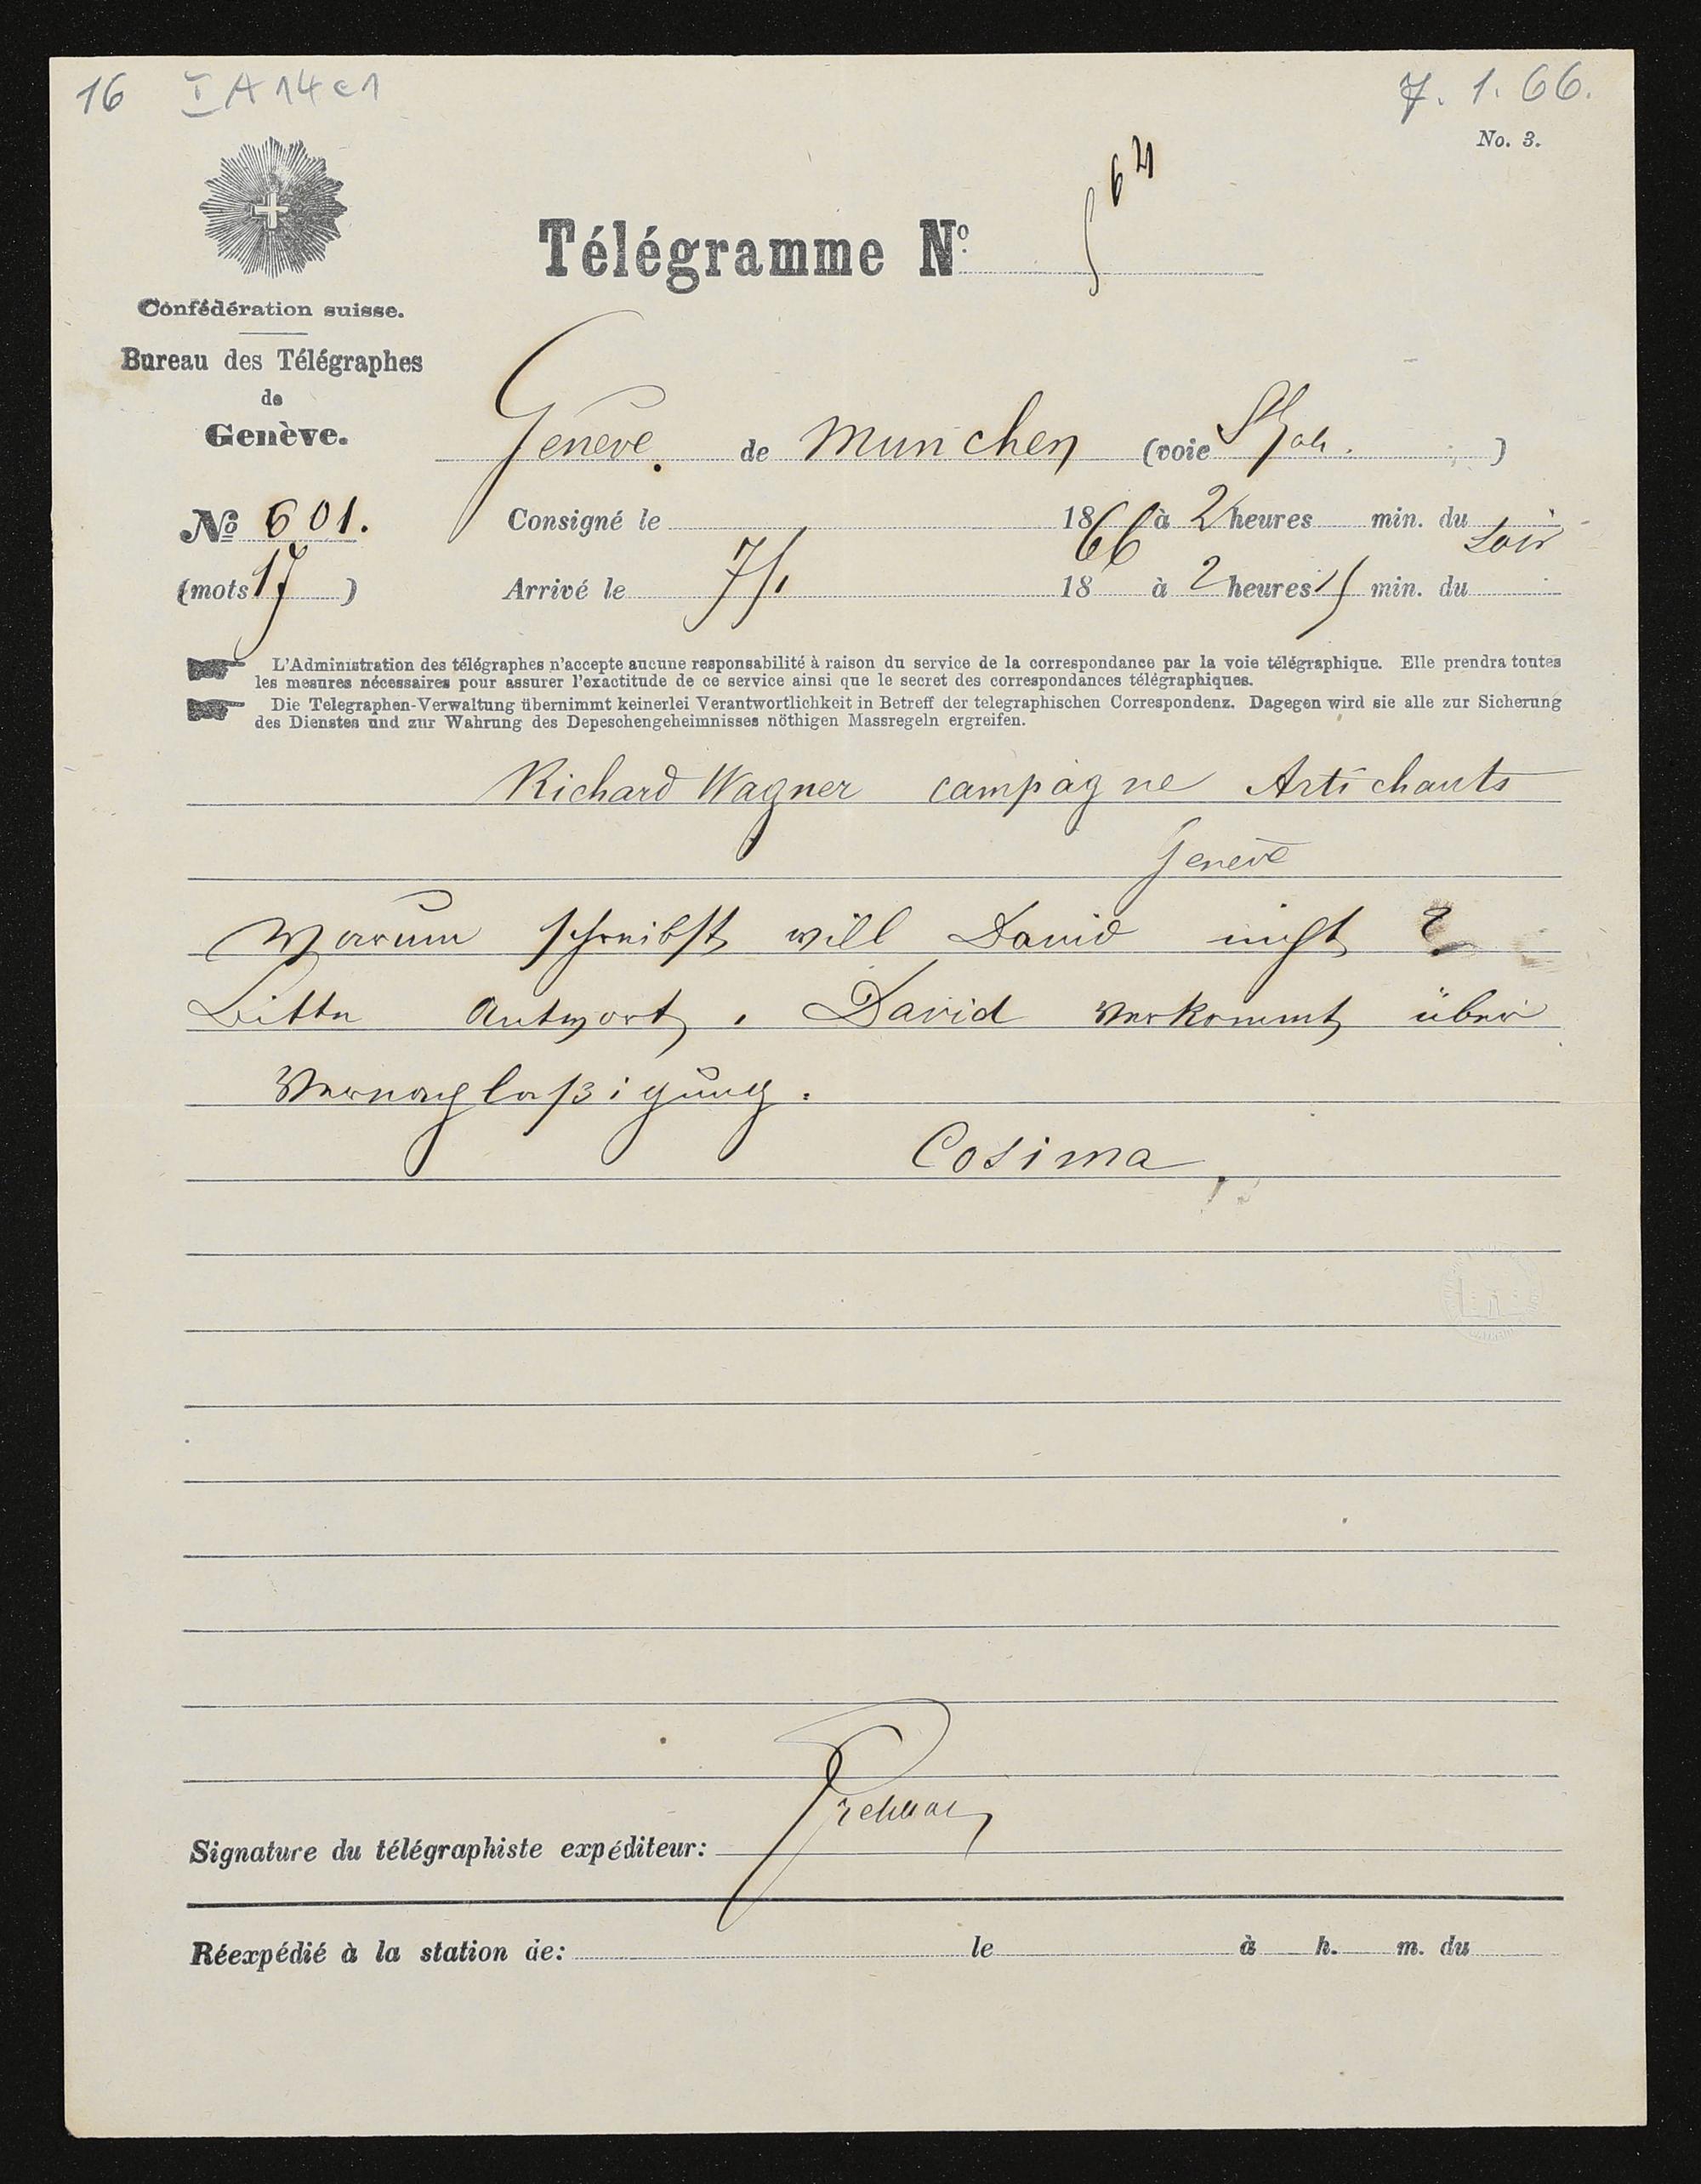 16 I A 14 c 1
7. 1. 66.
No. 3.
Télégramme No. 564
Confédération suisse.
Bureau des Télégraphes
de
Genève.
Geneve. de Munchen (voie )
No 601. Consigné le 1866 à 2 heures min. du Soir
(mots 17 ) Arrivé le 7/1 18 à 2 heures 15 min. du
L'Administration des télégraphes n'accepte aucune responsabilité à raison du service de la correspondance par la voie télégraphique. Elle prendra toutes
les mesures nécessaires pour assurer l'exactitude de ce service ainsi que le secret des correspondances télégraphiques.
Die Telegraphen-Verwaltung übernimmt keinerlei Verantwortlichkeit in Betreff der telegraphischen Correspondenz. Dagegen wird sie alle zur Sicherung
des Dienstes und zur Wahrung des Depeschengeheimnisses nöthigen Massregeln ergreifen.
Richard Wagner campagne Artichauts
Geneve
Warum schreibst will David nicht ?
Bitte Antwort. David verkommt über
Vernachlaßigung.
Cosima
Signature du télégraphiste expéditeur:
Réexpédié à la station de: le à h. m. du